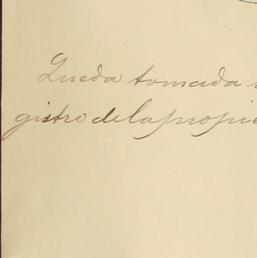 Queda tomada
gistro de la propie